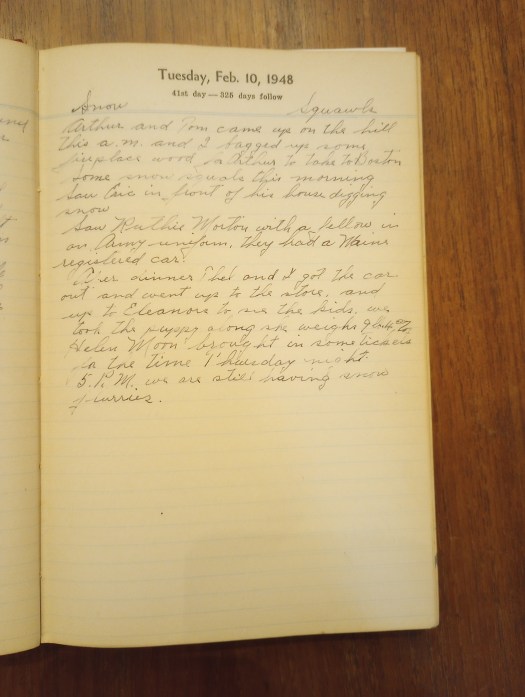 Tuesday, Feb. 10, 1948
41st day — 325 days follow
Snow Squawls
Arthur and Tom came up on the hill
this a.m. and I bagged up some
fireplace wood for Arthur to take to Boston
some snow squals this morning
Saw Eric in front of his house digging
snow
Saw Ruthie Morton with a fellow in
an Army uniform, they had a Maine
registered car.
After dinner Thel and I got the car
out and went up to the store, and
up to Eleanors to see the kids, we
took the puppy along she weighs 9 lbs.
Helen Moon brought in some tickets
for the time Thursday night.
5. P.M. we are still having snow
flurries.